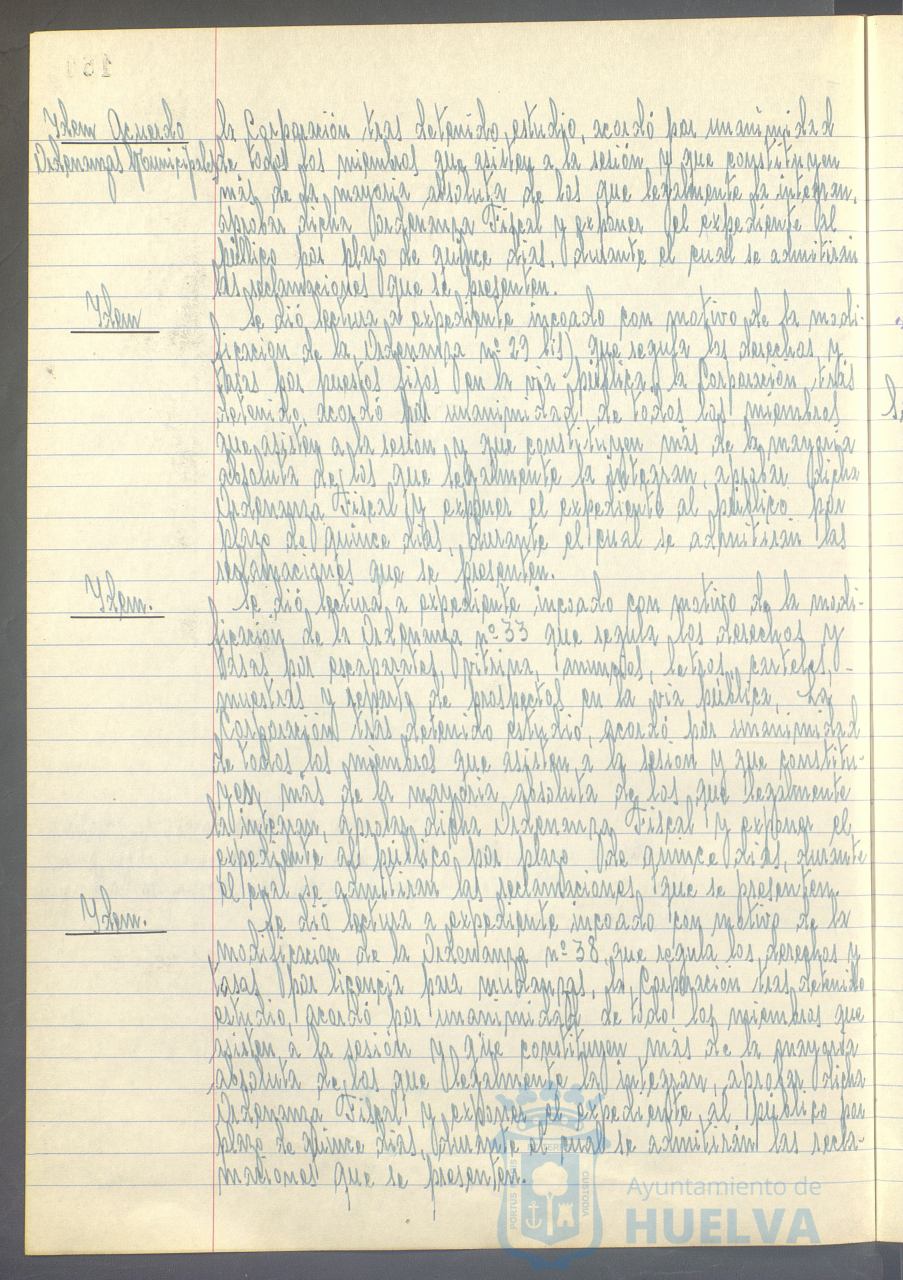 Idem Acuerdo
Ordenanzas Municipales
la Corporación tras detenido estudio, acordó por unanimidad
de todos los miembros que asisten a la sesión y que constituyen
más de la mayoría absoluta de los que legalmente la integran,
aprobar dicha Ordenanza Fiscal y exponer el expediente al
público por plazo de quince días, durante el cual se admitirán
las reclamaciones que se presenten.
Idem
Se dió lectura a expediente incoado con motivo de la modi-
ficación de la Ordenanza nº 29 bis) que regula los derechos y
tasas por puestos fijos en la vía pública, la Corporación, tras
detenido, acordó por unanimidad de todos los miembros
que asisten a la sesión y que constituyen más de la mayoría
absoluta de los que legalmente la integran, aprobar dicha
Ordenanza Fiscal y exponer el expediente al público por
plazo de quince días, durante el cual se admitirán las
reclamaciones que se presenten.
Idem.
Se dió lectura a expediente incoado con motivo de la modi-
ficación de la Ordenanza nº 33 que regula los derechos y
tasas por escaparates, vitrina, anuncios, letros, carteles,
muestras y reparto de prospectos en la vía pública, la
Corporación tras detenido estudio, acordó por unanimidad
de todos los miembros que asisten a la sesión y que constitu-
yen más de la mayoría absoluta de los que legalmente
la integran, aprobar dicha Ordenanza Fiscal y exponer el
expediente al público por plazo de quince días, durante
el cual se admitirán las reclamaciones que se presenten.
Idem.
Se dió lectura a expediente incoado con motivo de la
modificación de la Ordenanza nº 38, que regula los derechos y
tasas por licencia para mudanzas, la Corporación tras detenido
estudio, acordó por unanimidad de todo los miembros que
asisten a la sesión y que constituyen más de la mayoría
absoluta de los que legalmente la integran, aprobar dicha
Ordenanza Fiscal y exponer el expediente al público por
plazo de quince días, durante el cual se admitirán las recla-
maciones que se presenten.
PORTUS MARIS CUSTODIA
Ayuntamiento de
HUELVA